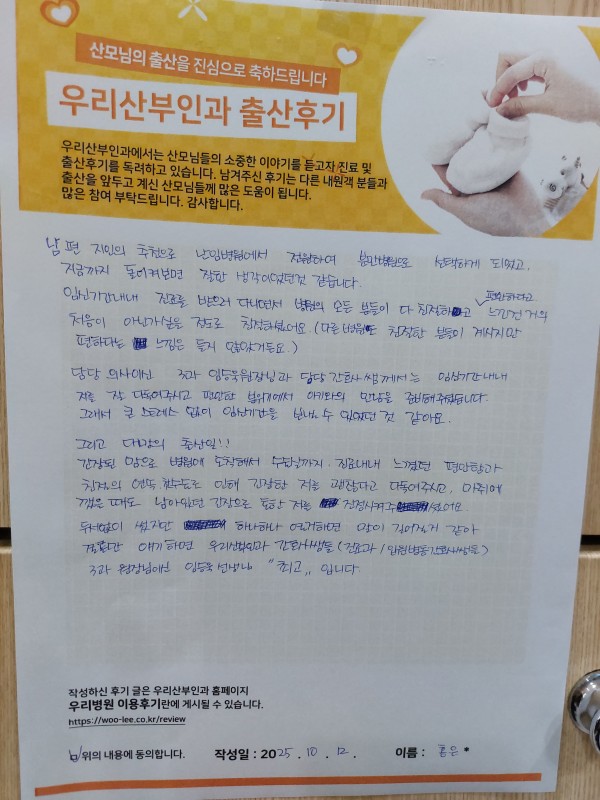 산모님의 출산을 진심으로 축하드립니다
우리산부인과 출산후기
우리산부인과에서는 산모님들의 소중한 이야기를 듣고자 진료 및
출산후기를 독려하고 있습니다. 남겨주신 후기는 다른 내원객 분들과
출산을 앞두고 계신 산모님들께 많은 도움이 됩니다.
많은 참여 부탁드립니다. 감사합니다.
남편 지인의 추천으로 난임병원에서 전원하여 분만병원으로 선택하게 되었고,
지금까지 돌이켜보면 잘한 생각이었던것 같습니다.
임신기간내내 진료를 받으러 다니면서 병원의 모든 분들이 다 친절하고 편안하다고 느낀건 거의
처음이 아닌가싶을 정도로 친절하셨어요. (다른병원도 친절한 분들이 계시지만
편하다는 느낌은 들지 않았거든요.)
담당 의사이신 3과 임동욱원장님과 담당 간호사쌤께서는 임신기간내내
저를 잘 다독여주시고 편안한 분위기에서 아기와의 만남을 준비해주셨습니다.
그래서 큰 스트레스 없이 임신기간을 보낼 수 있었던 것 같아요.
그리고 대망의 출산일!!
긴장된 맘으로 병원에 도착해서 수술실까지. 진료내내 느꼈던 편안함과
친절의 연속 하지만 긴장한 저를 괜찮다고 다독여주시고, 마취에
깼을 때도 남아있던 긴장으로 통한 저를 진정시켜주셨어요.
두서없이 썼지만 하나하나 여거하면 많이 길어질거 같아
결론만 얘기하면 우리산부인과 간호사쌤들 (진료과/입원병동간호사쌤들)
3과 원장님이신 임동욱선생님 "최고" 입니다.
작성하신 후기 글은 우리산부인과 홈페이지
우리병원 이용후기란에 게시될 수 있습니다.
https://woo-lee.co.kr/review
위의 내용에 동의합니다. 작성일 : 2025 . 10 . 12 . 이름 : 홍은*